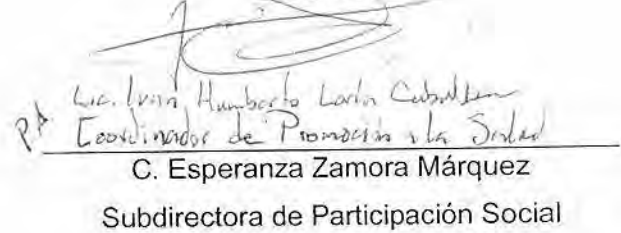 Lic. Iván Humberto
PA Coordinador de Promoción a la Salud
C. Esperanza Zamora Márquez
Subdirectora de Participación Social